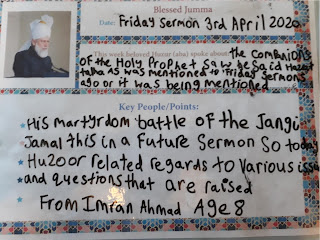 Blessed Jumma
Date: Friday Sermon 3rd April 2020
This week beloved Huzur (aba) spoke about the companions
of the Holy Prophet saw he said Hazrat
talha as was mentioned to Friday Sermons
ago or it was being mentioned
Key People/Points:
His martyrdom battle of the Jangi
Jamal this in a Future Sermon So today
Huzoor related regards to various issu
and questions that are raised
From Imran Ahmad Age 8